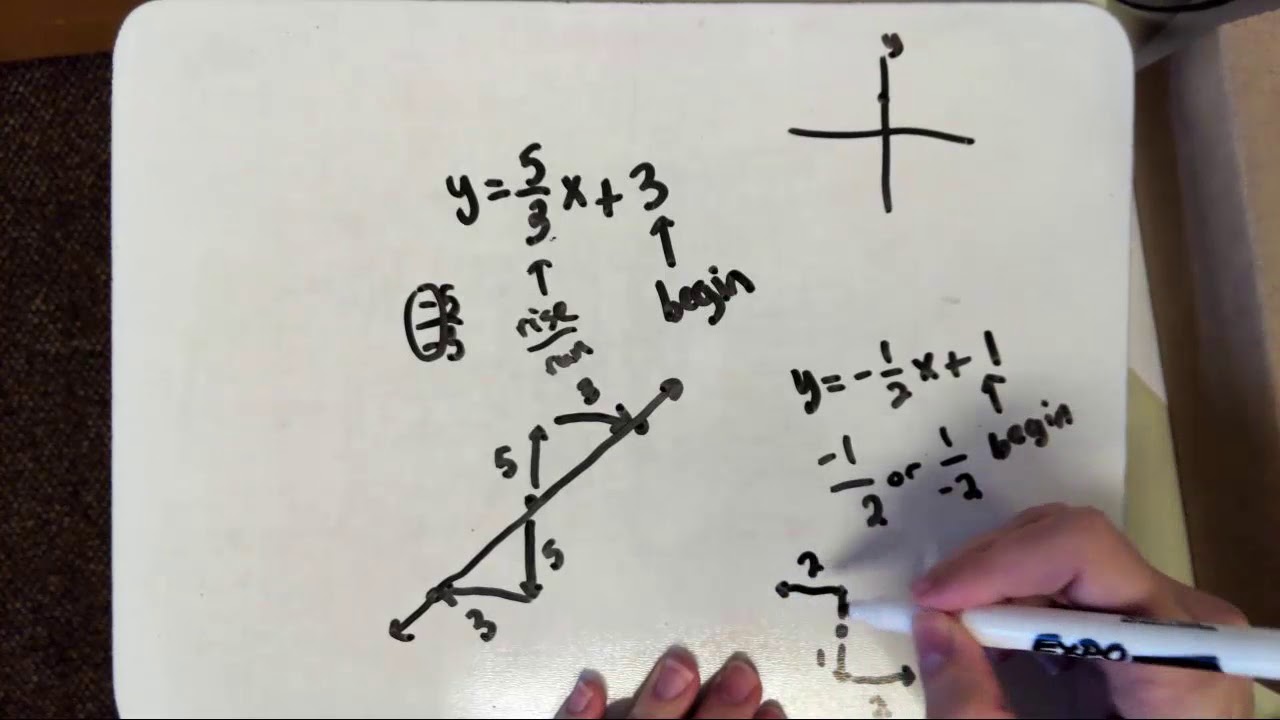 y
y = 5/3 x + 3
begin
rise
run
-5
-3
3
5
5
3
y = - 1/2 x + 1
begin
-1/2 or 1/-2
2
1
2
EXPO